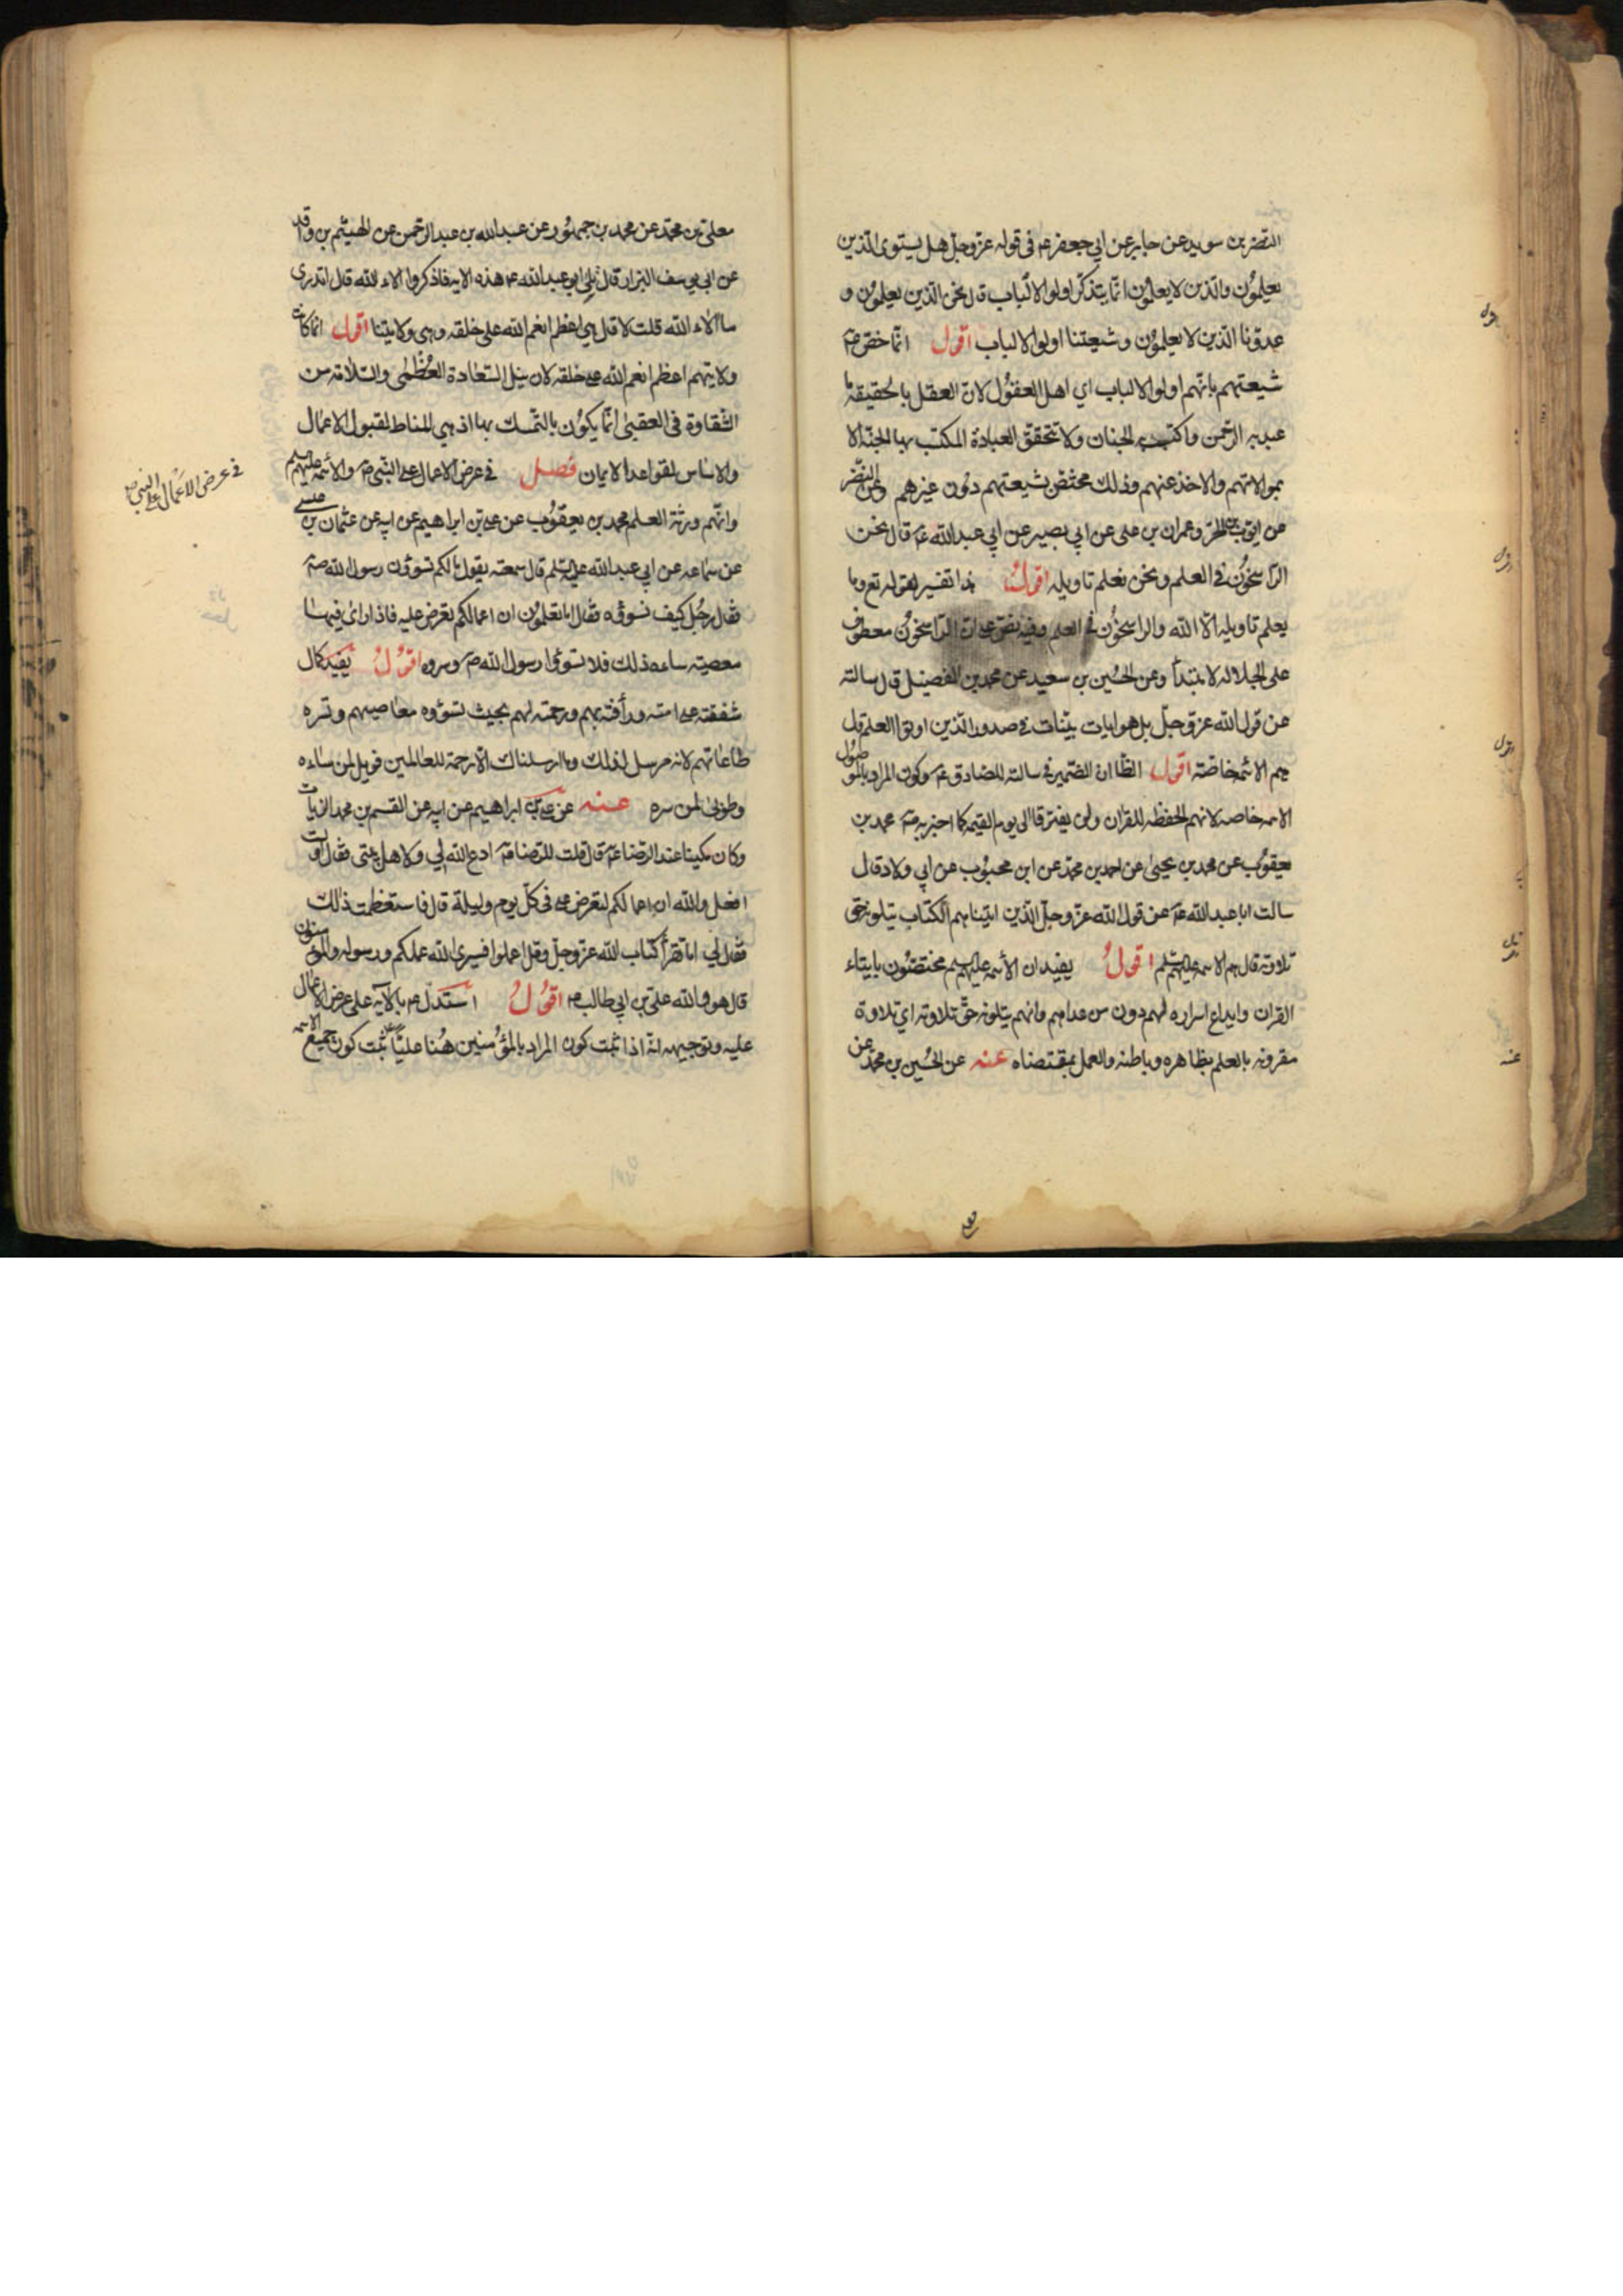 النضر بن سويد عن جابر عن ابي جعفر ع م في قوله عز وجل هل يستوي الذين
يعلمون والذين لا يعلمون انما يتذكر اولو الالباب قال نحن الذين يعلمون و
عدونا الذين لا يعلمون وشيعتنا اولوا الالباب اقول انما خص ع م
شيعتهم بانهم اولوا الالباب اي اهل العقول لان العقل بالحقيقة ما
عبد به الرحمن واكتسب به الجنان ولا تتحقق العبادة المكتسب بها الجنة الا
بموالاتهم والاخذ عنهم وذلك مختص بشيعتهم دون غيرهم النضر
عن ايوب بن الحر وعمران بن علي عن ابي بصير عن ابي عبد الله ع م قال نحن
الراسخون في العلم ونحن نعلم تاويله اقول هذا تفسير لقوله تع وما
يعلم تاويله الا الله والراسخون في العلم وفيه نص على ان الراسخون معطوف
على الجلالة لا مبتدأ وعن الحسين بن سعيد عن محمد بن الفضيل قال سالته
عن قول الله عز وجل بل هو ايات بينات في صدور الذين اوتوا العلم قال
هم الائمة خاصة اقول الظا ان الضمير في سالته للصادق ع م وكون المراد بالموصول
الائمه خاصه لانهم الحفظه للقران ولن يفترقا الى يوم القيمه كما اخبر به ص م محمد بن
يعقوب عن محمد بن يحيى عن احمد بن محمد عن ابن محبوب عن ابي ولاد قال
سالت ابا عبد الله ع م عن قول الله عز وجل الذين اتيناهم الكتاب يتلونه حق
تلاوته قال هم الائمه عليهم السلم اقول يفيد ان الأئمه عليهم السلم مختصون بايتاء
القران وايداع اسراره لهم دون من عداهم وانهم يتلونه حق تلاوته اي تلاوة
مقرونه بالعلم بظاهره وباطنه والعمل بمقتضاه عنه عن الحسين بن محمد عن
اقول
اقول
اقول
عنه
معلى بن محمد عن محمد بن جمهور عن عبد الله بن عبد الرحمن عن الهيثم بن واقد
عن ابي يوسف البزاز قال تلى ابو عبد الله ع م هذه الايه فاذكروا الاء الله قال اتدري
ما الاء الله قلت لا قال هي اعظم انعم الله على خلقه وهي ولايتنا اقول انما كانت
ولايتهم اعظم انعم الله على خلقه لان نيل السعادة العظمى والسلامه من
الشقاوة في العقبى انما يكون بالتمسك بها اذ هي المناط لقبول الاعمال
والاساس لقواعد الايمان فصل في عرض الاعمال على النبي ص م والأئمه عليهم السلم
وانهم ورثة العلم محمد بن يعقوب عن علي بن ابراهيم عن ابيه عن عثمان بن عيسى
عن سماعه عن ابي عبد الله عليه السلم قال سمعته يقول مالكم تسوؤن رسول الله ص م
فقال رجل كيف نسوؤه فقال اما تعلمون ان اعمالكم تعرض عليه فاذا راى فيها
معصيته ساءه ذلك فلا تسوؤا رسول الله ص م وسروه اقول يفيد كمال
شفقته على امته ورأفته بهم ورحمته لهم بحيث تسؤوه معاصيهم وتسره
طاعاتهم لانه مرسل لذلك وما ارسلناك الا رحمة للعالمين فويل لمن ساءه
وطوبى لمن سره عنه عن علي بن ابراهيم عن ابيه عن القسم بن محمد الزيات
وكان مكينا عند الرضا ع م قال قلت للرضا ع م ادع الله لي ولاهل بيتي فقال اولست
افعل والله ان اعمالكم لتعرض علي في كل يوم وليلة قال فاستعظمت ذلك
فقال لي اما تقرأ كتاب الله عز وجل وقل اعملوا فسيرى الله عملكم ورسوله والمؤمنون
قال هو والله علي بن ابي طالب ع م اقول استدل ع م بالآيه على عرض الاعمال
عليه وتوجيهه انه اذا ثبت كون المراد بالمؤمنين هنا عليا ع م ثبت كون جميع الائمه
في عرض الاعمال على النبي ص